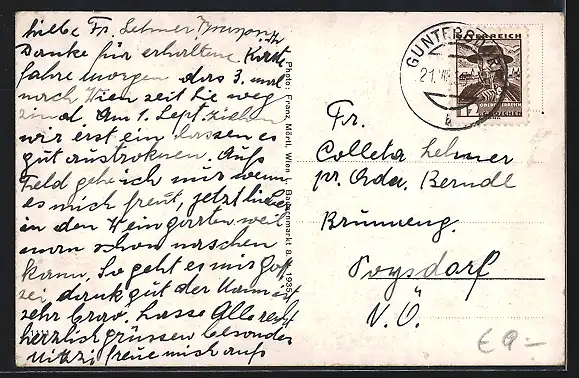 liebe Fr. Lehner
Danke für erhaltene Karte
fahre morgen das 3. mal
nach Wien seit Sie weg
sind. Am 1. Sept. ziehen
wir erst ein lassen es
gut austroknen. Aufs
Feld gehe ich mir wenn
es mich freut, jetzt lieber
in den Weingarten weil
man schon naschen
kann. So geht es mir Gott
sei dank gut der Mann ist
sehr brav. Lasse Alle recht
herzlich grüssen besonders
Mitzi freue mich aufs
Photo: Franz Mördl, Wien I., Bauernmarkt 8. 1935
GUNTERSD
21. VIII
ÖSTERREICH
OBERÖSTERREICH
12 GROSCHEN
Fr.
Colleta Lehner
pr. Adr. Berndl
Brunneng.
Poysdorf
N.Ö.
€ 9.-